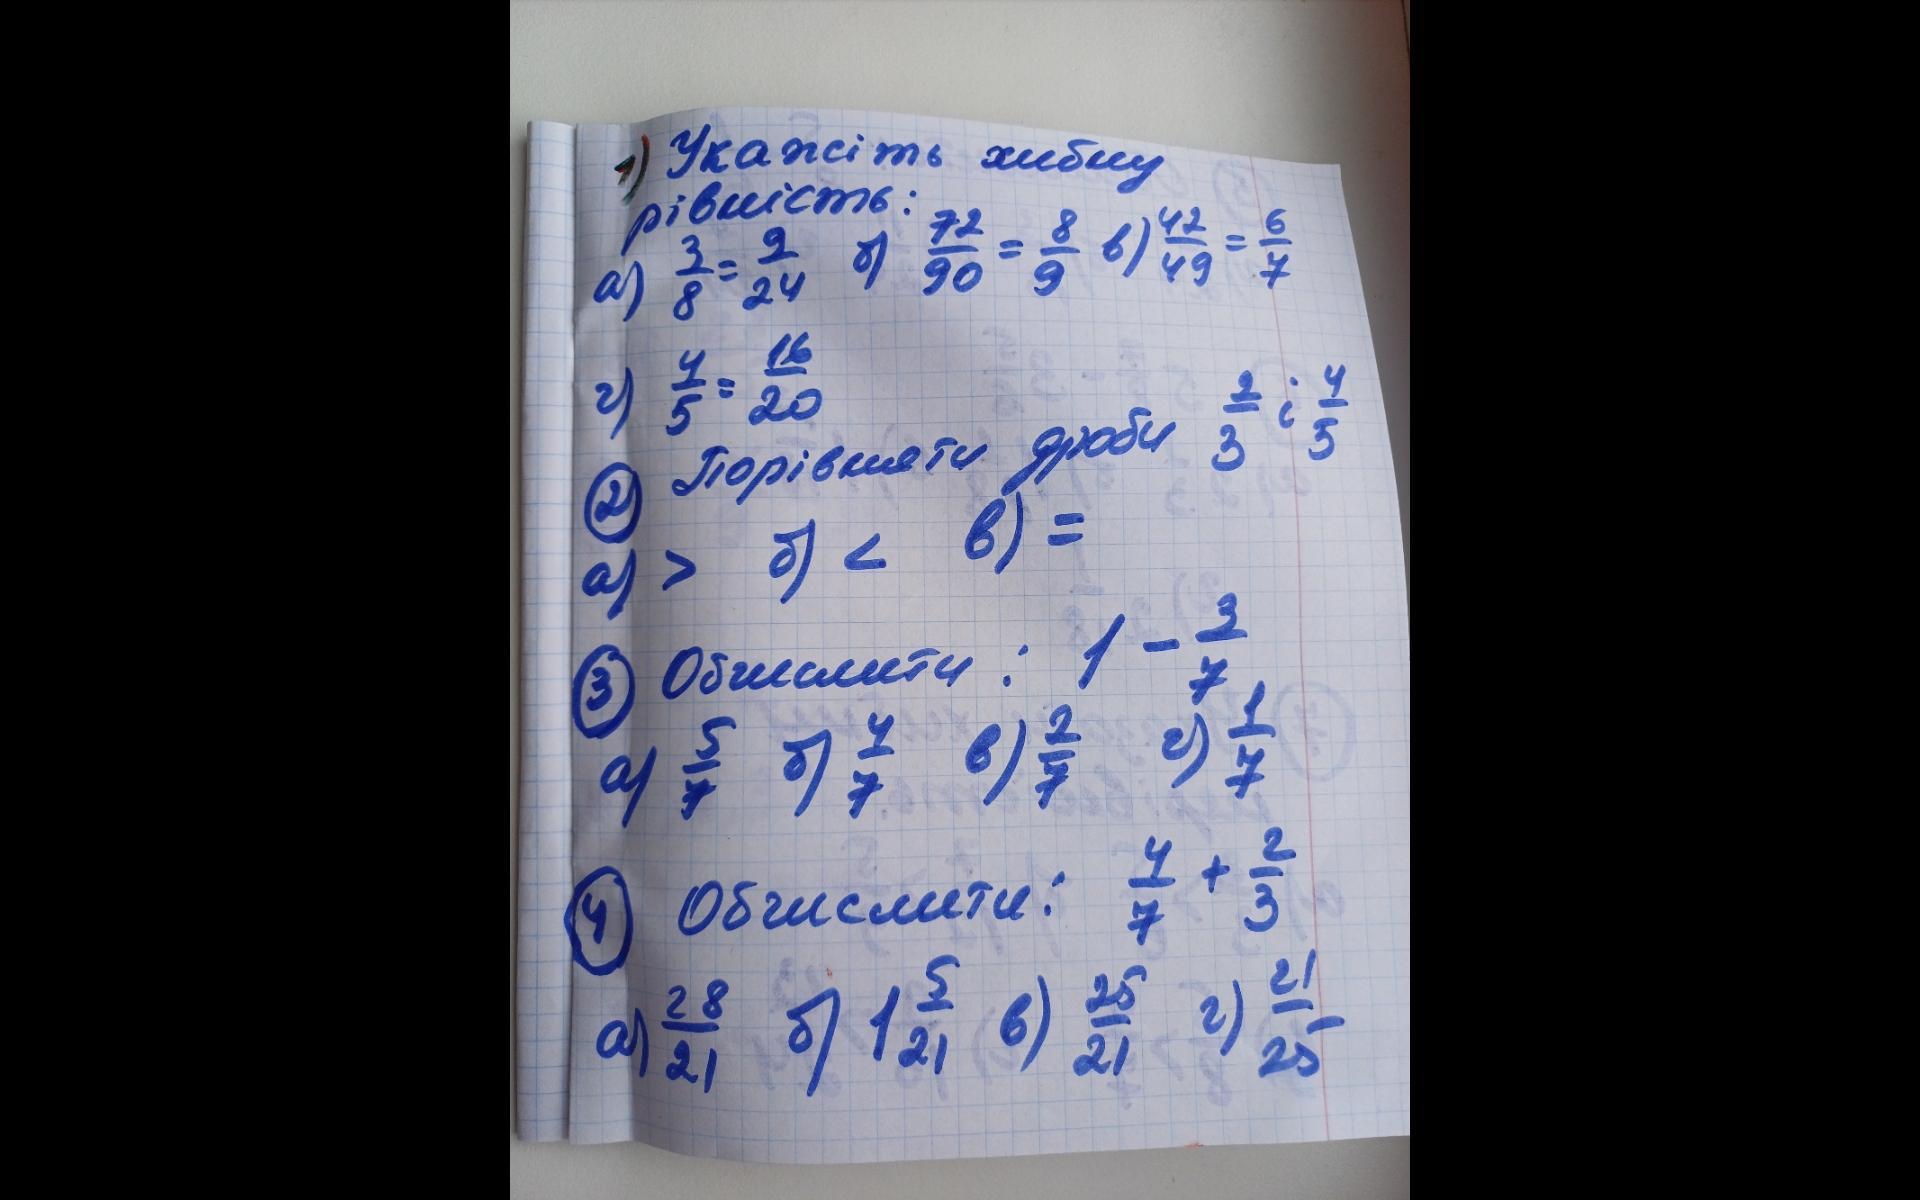 1) Укажіть хибну
рівність:
а) 3/8 = 9/24 б) 72/90 = 8/9 в) 42/49 = 6/7
г) 4/5 = 16/20
2 Порівняти дроби 2/3 і 4/5
а) > б) < в) =
3 Обчислити: 1 - 3/7
а) 5/7 б) 4/7 в) 2/7 г) 1/7
4 Обчислити: 4/7 + 2/3
а) 28/21 б) 1 5/21 в) 25/21 г) 21/25